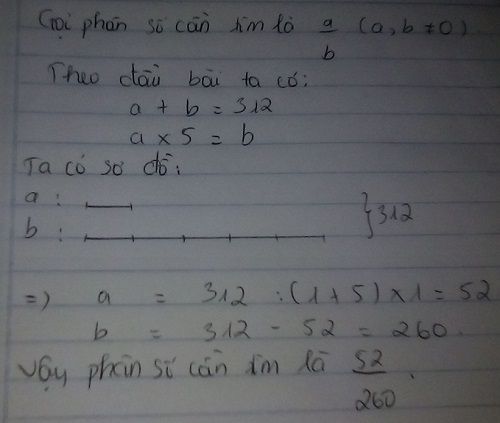 Gọi phân số cần tìm là a/b (a, b ≠ 0)
Theo đầu bài ta có:
a + b = 312
a x 5 = b
Ta có sơ đồ:
a :
b :
}312
=) a = 312 : (1 + 5) x 1 = 52
b = 312 - 52 = 260.
Vậy phân số cần tìm là 52/260.